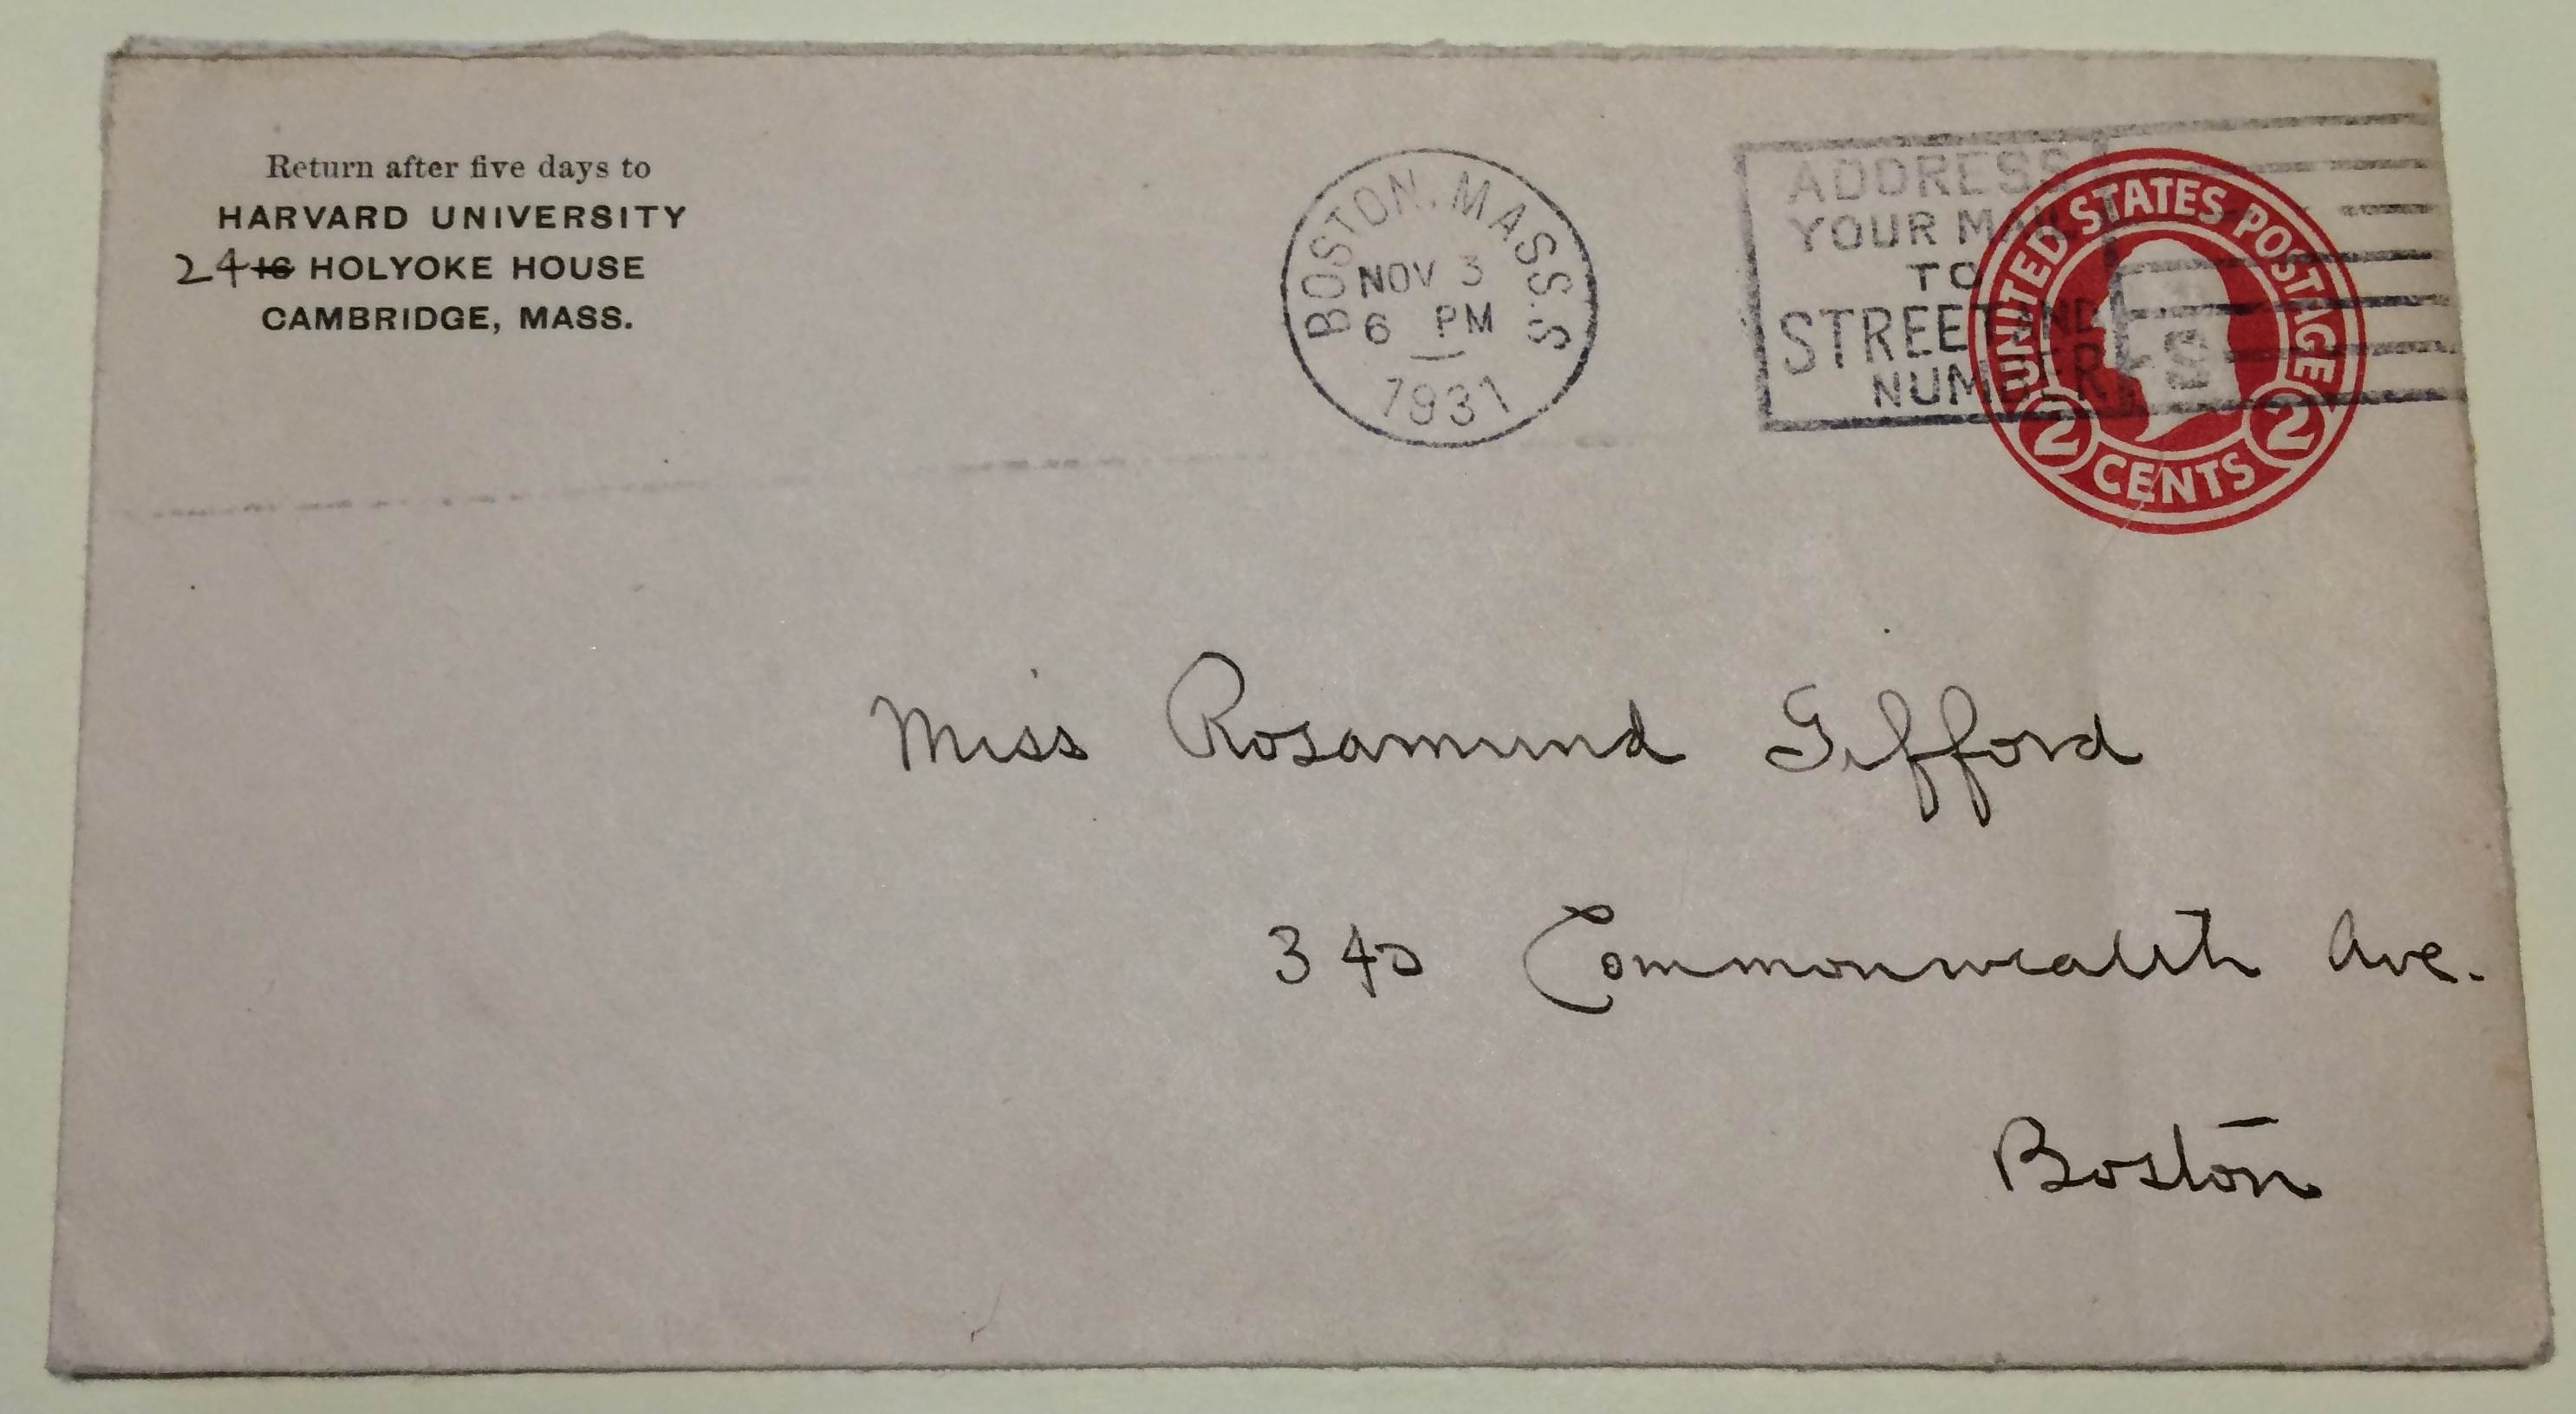 Return after five days to
HARVARD UNIVERSITY
24 16 HOLYOKE HOUSE
CAMBRIDGE, MASS.
BOSTON, MASS.
NOV 3
6 PM
1931
ADDRESS
YOUR MAIL
TO
STREET AND
NUMBER
UNITED STATES POSTAGE
2 CENTS 2
Miss Rosamund Gifford
340 Commonwealth Ave.
Boston